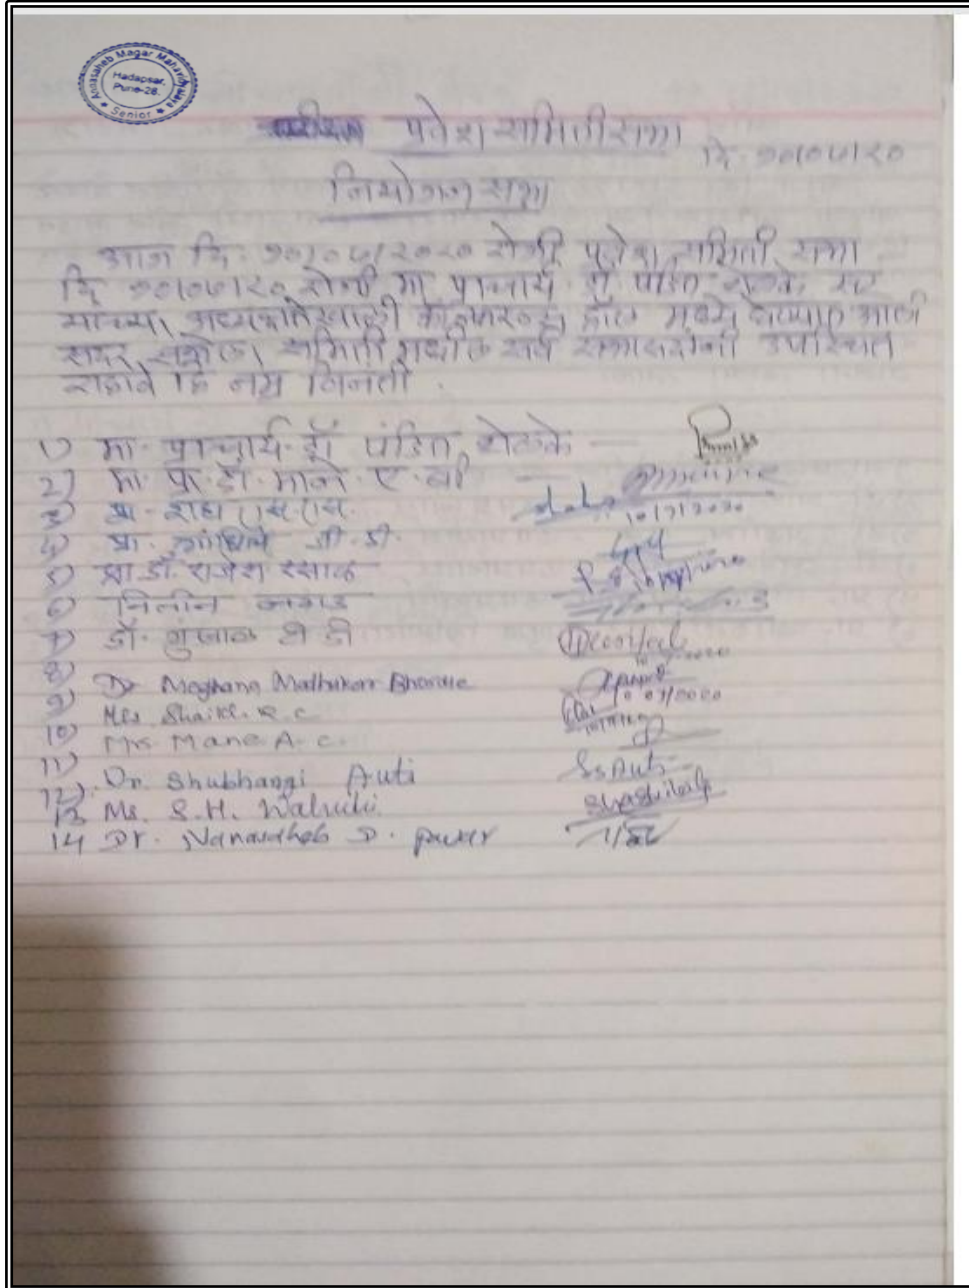 Annasaheb Magar Mahavidyalaya
Hadapsar,
Pune-28.
★ Senior ★
प्रवेश समिती सभा
दि. १०/०७/२०
नियोजन सभा
आज दि. १०/०७/२०२० रोजी प्रवेश समिती सभा
दि १०/०७/२० रोजी मा प्राचार्य डॉ पंडित शेळके सर
यांच्या अध्यक्षतेखाली कॉन्फरन्स हॉल मध्ये घेण्यात आली
सदर सभेला समिती मधील सर्व सभासदांनी उपस्थित
राहावे हि नम्र विनंती.
1) मा. प्राचार्य. डॉ पंडित शेळके —
2) मा. प्रा. डॉ. माने ए. बी —
3) प्रा. शहा एस. एस. 10/7/2020
4) प्रा. जी. डी.
5) प्रा. डॉ. राजेश रसाळ
6) नितीन जगताप
7) डॉ. गुंजाळ टी डी
8)
9) Dr Meghana Madhukar Bhosale
10) Mrs Shaikh. R. C
11) Mrs Mane A. C.
12) Dr. Shubhangi Auti SsAuti
13 Ms. S. H. Walruli
14 Dr. Nanasaheb D. Pawar